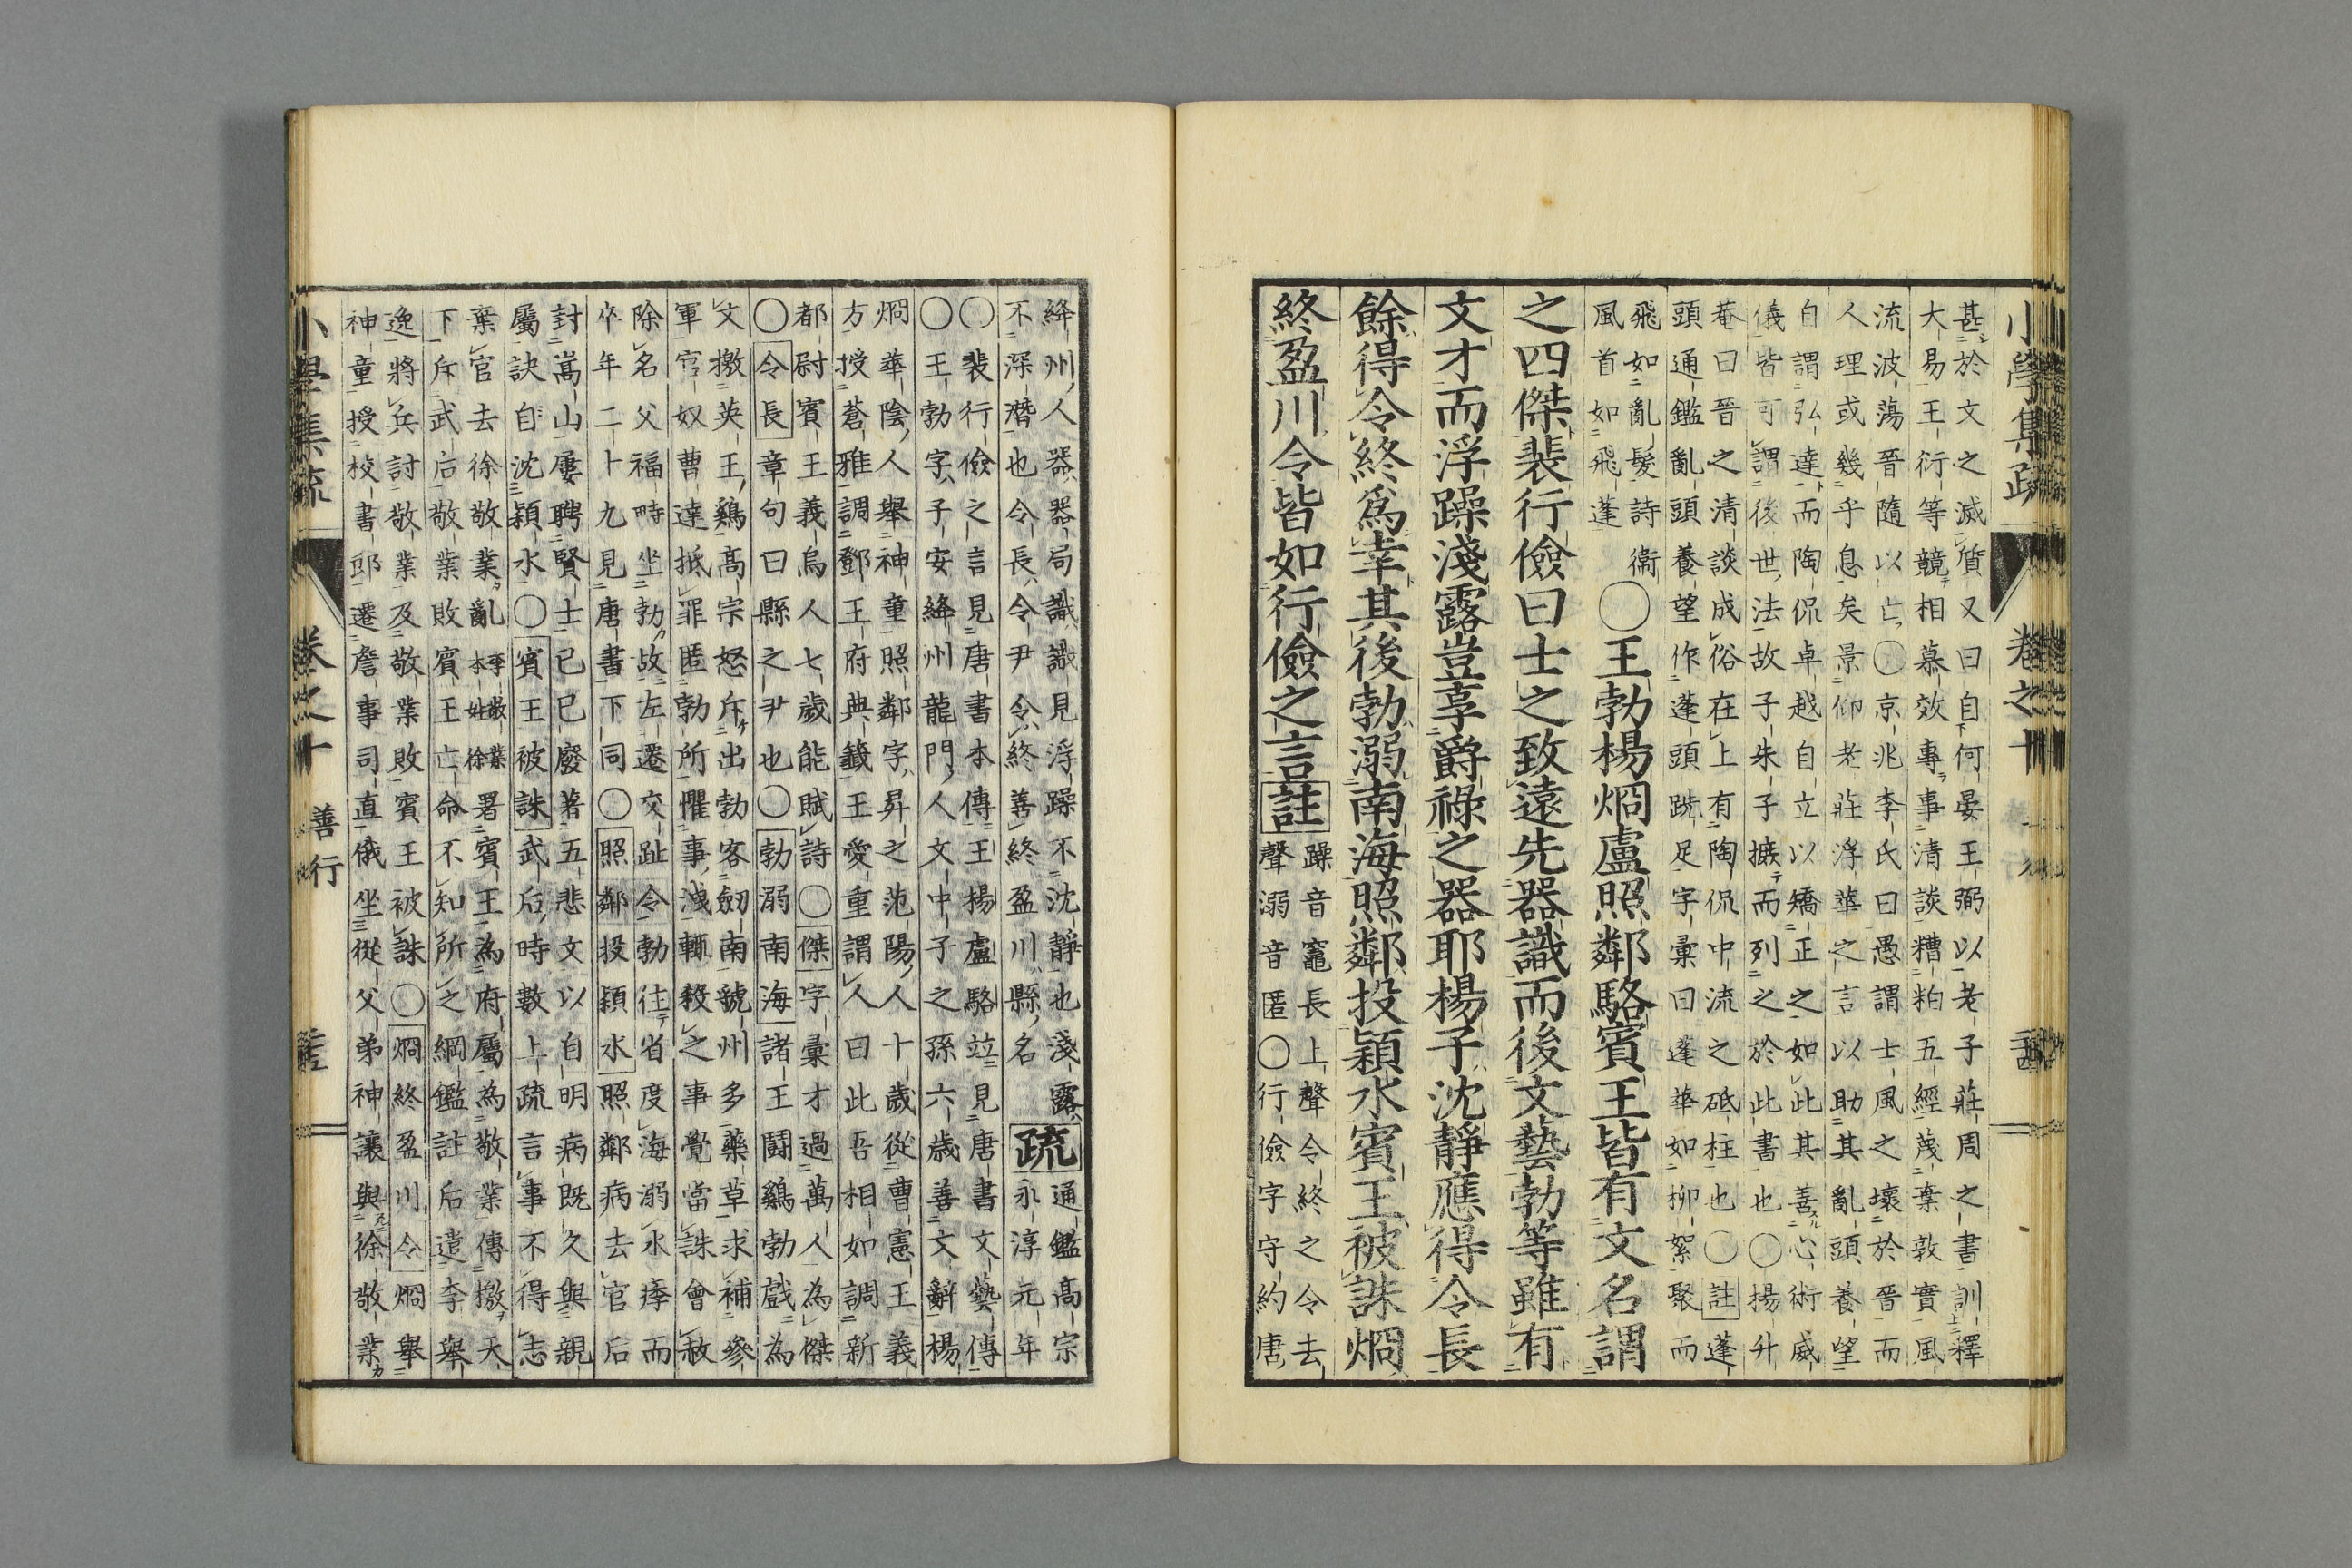 小學集疏 卷之十
甚於文之滅質又曰自何晏王弼以老子莊周之書訓釋
大易王衍等競相慕效專事清談糟粕五經蔑棄敦實風
流波蕩晉隨以亡〇京兆李氏曰愚謂士風之壞於晉而
人理或幾乎息矣景仰老莊浮華之言以助其亂頭養望
自謂弘達而陶侃卓越自立以矯正之如此其善心術威
儀皆可謂後世法故子朱子摭而列之於此書也〇揚升
菴曰晉之清談成俗在上有陶侃中流之砥柱也〇註蓬
頭通鑑亂頭養望作蓬頭跣足字彙曰蓬華如柳絮聚而
飛如亂髮詩衞
風首如飛蓬
〇王勃楊烱盧照鄰駱賓王皆有文名謂
之四傑裴行儉曰士之致遠先器識而後文藝勃等雖有
文才而浮躁淺露豈享爵祿之器耶楊子沈靜應得令長
餘得令終爲幸其後勃溺南海照鄰投潁水賓王被誅烱
終盈川令皆如行儉之言註
躁音竈長上聲令終之令去
聲溺音匿〇行儉字守約唐
絳州人器器局識識見浮躁不沈靜也淺露
不深潛也令長令尹令終善終盈川縣名
疏
通鑑高宗
永淳元年
〇裴行儉之言見唐書本傳王楊盧駱竝見唐書文藝傳
〇王勃字子安絳州龍門人文中子之孫六歲善文辭楊
烱華陰人舉神童照鄰字昇之范陽人十歲從曹憲王義
方授蒼雅調鄧王府典籤王愛重謂人曰此吾相如調新
都尉賓王義烏人七歲能賦詩〇傑字彙才過萬人為傑
〇令長章句曰縣之尹也〇勃溺南海諸王鬪鷄勃戲為
文檄英王鷄高宗怒斥出勃客劒南虢州多藥草求補參
軍官奴曹達抵罪匿勃所懼事洩輒殺之事覺當誅會赦
除名父福畤坐勃故左遷交趾令勃往省度海溺水㾕而
卒年二十九見唐書下同〇照鄰投潁水照鄰病去官后
封嵩山屢聘賢士已已廢著五悲文以自明病既久與親
屬訣自沈潁水〇賓王被誅武后時數上疏言事不得志
棄官去徐敬業亂李敬業本姓徐署賓王為府屬為敬業傳檄天
下斥武后敬業敗賓王亡命不知所之綱鑑註后遣李舉
逸將兵討敬業及敬業敗賓王被誅〇烱終盈川令烱舉
神童授校書郎遷詹事司直俄坐從父弟神讓與徐敬業
小學集疏 卷之十 善行